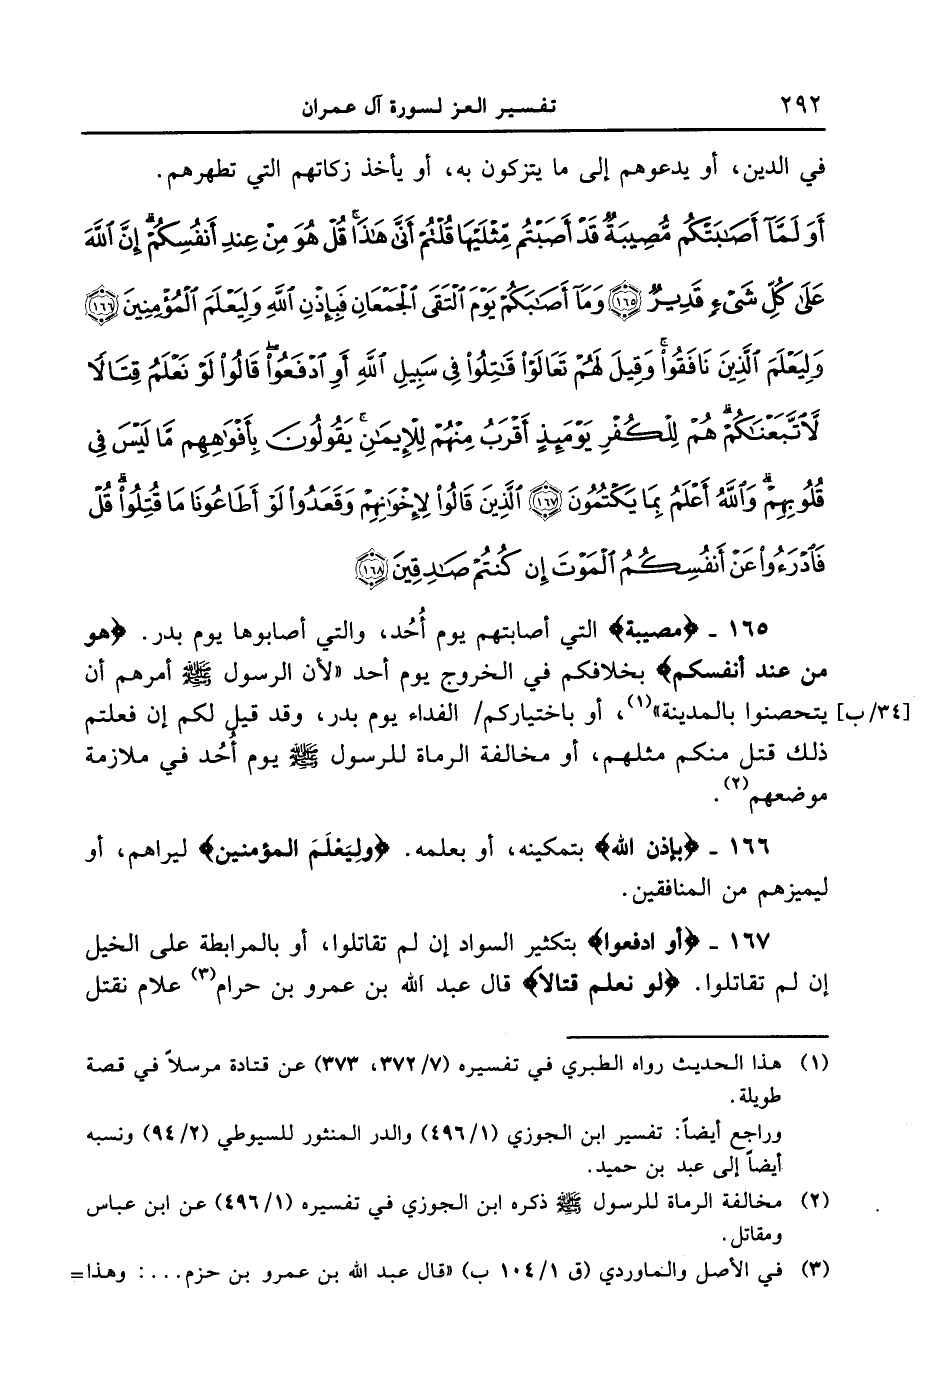 ٢٩٢ تفسير العز لسورة آل عمران
في الدين، أو يدعوهم إلى ما يتزكون به، أو يأخذ زكاتهم التي تطهرهم.
أَوَلَمَّآ أَصَـٰبَتْكُم مُّصِيبَةٌ قَدْ أَصَبْتُم مِّثْلَيْهَا قُلْتُمْ أَنَّىٰ هَـٰذَا ۖ قُلْ هُوَ مِنْ عِندِ أَنفُسِكُمْ ۗ إِنَّ ٱللَّهَ
عَلَىٰ كُلِّ شَىْءٍ قَدِيرٌ ١٦٥ وَمَآ أَصَـٰبَكُمْ يَوْمَ ٱلْتَقَى ٱلْجَمْعَانِ فَبِإِذْنِ ٱللَّهِ وَلِيَعْلَمَ ٱلْمُؤْمِنِينَ ١٦٦
وَلِيَعْلَمَ ٱلَّذِينَ نَافَقُوا۟ ۚ وَقِيلَ لَهُمْ تَعَالَوْا۟ قَـٰتِلُوا۟ فِى سَبِيلِ ٱللَّهِ أَوِ ٱدْفَعُوا۟ ۖ قَالُوا۟ لَوْ نَعْلَمُ قِتَالًا
لَّٱتَّبَعْنَـٰكُمْ ۗ هُمْ لِلْكُفْرِ يَوْمَئِذٍ أَقْرَبُ مِنْهُمْ لِلْإِيمَـٰنِ ۚ يَقُولُونَ بِأَفْوَٰهِهِم مَّا لَيْسَ فِى
قُلُوبِهِمْ ۗ وَٱللَّهُ أَعْلَمُ بِمَا يَكْتُمُونَ ١٦٧ ٱلَّذِينَ قَالُوا۟ لِإِخْوَٰنِهِمْ وَقَعَدُوا۟ لَوْ أَطَاعُونَا مَا قُتِلُوا۟ ۗ قُلْ
فَٱدْرَءُوا۟ عَنْ أَنفُسِكُمُ ٱلْمَوْتَ إِن كُنتُمْ صَـٰدِقِينَ ١٦٨
١٦٥ ـ ﴿مصيبة﴾ التي أصابتهم يوم أُحُد، والتي أصابوها يوم بدر. ﴿هو
من عند أنفسكم﴾ بخلافكم في الخروج يوم أحد «لأن الرسول ﷺ أمرهم أن
[٣٤/ب] يتحصنوا بالمدينة»(١)، أو باختياركم/ الفداء يوم بدر، وقد قيل لكم إن فعلتم
ذلك قتل منكم مثلهم، أو مخالفة الرماة للرسول ﷺ يوم أُحُد في ملازمة
موضعهم(٢).
١٦٦ ـ ﴿بإذن الله﴾ بتمكينه، أو بعلمه. ﴿ولِيَعْلَمَ المؤمنين﴾ ليراهم، أو
ليميزهم من المنافقين.
١٦٧ ـ ﴿أو ادفعوا﴾ بتكثير السواد إن لم تقاتلوا، أو بالمرابطة على الخيل
إن لم تقاتلوا. ﴿لو نعلم قتالاً﴾ قال عبد الله بن عمرو بن حرام(٣) علام نقتل
(١) هذا الحديث رواه الطبري في تفسيره (٧/ ٣٧٢، ٣٧٣) عن قتادة مرسلاً في قصة
طويلة.
وراجع أيضاً: تفسير ابن الجوزي (١/ ٤٩٦) والدر المنثور للسيوطي (٢/ ٩٤) ونسبه
أيضاً إلى عبد بن حميد.
(٢) مخالفة الرماة للرسول ﷺ ذكره ابن الجوزي في تفسيره (١/ ٤٩٦) عن ابن عباس
ومقاتل.
(٣) في الأصل والماوردي (ق ١/ ١٠٤ ب) «قال عبد الله بن عمرو بن حزم...: وهذا=